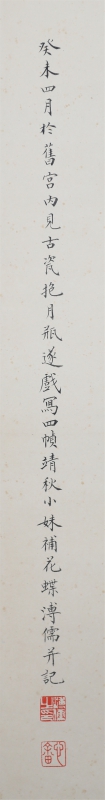 癸未四月於舊宮內見古瓷抱月瓶遂戲寫四幀靖秋小妹補花蝶溥儒并記